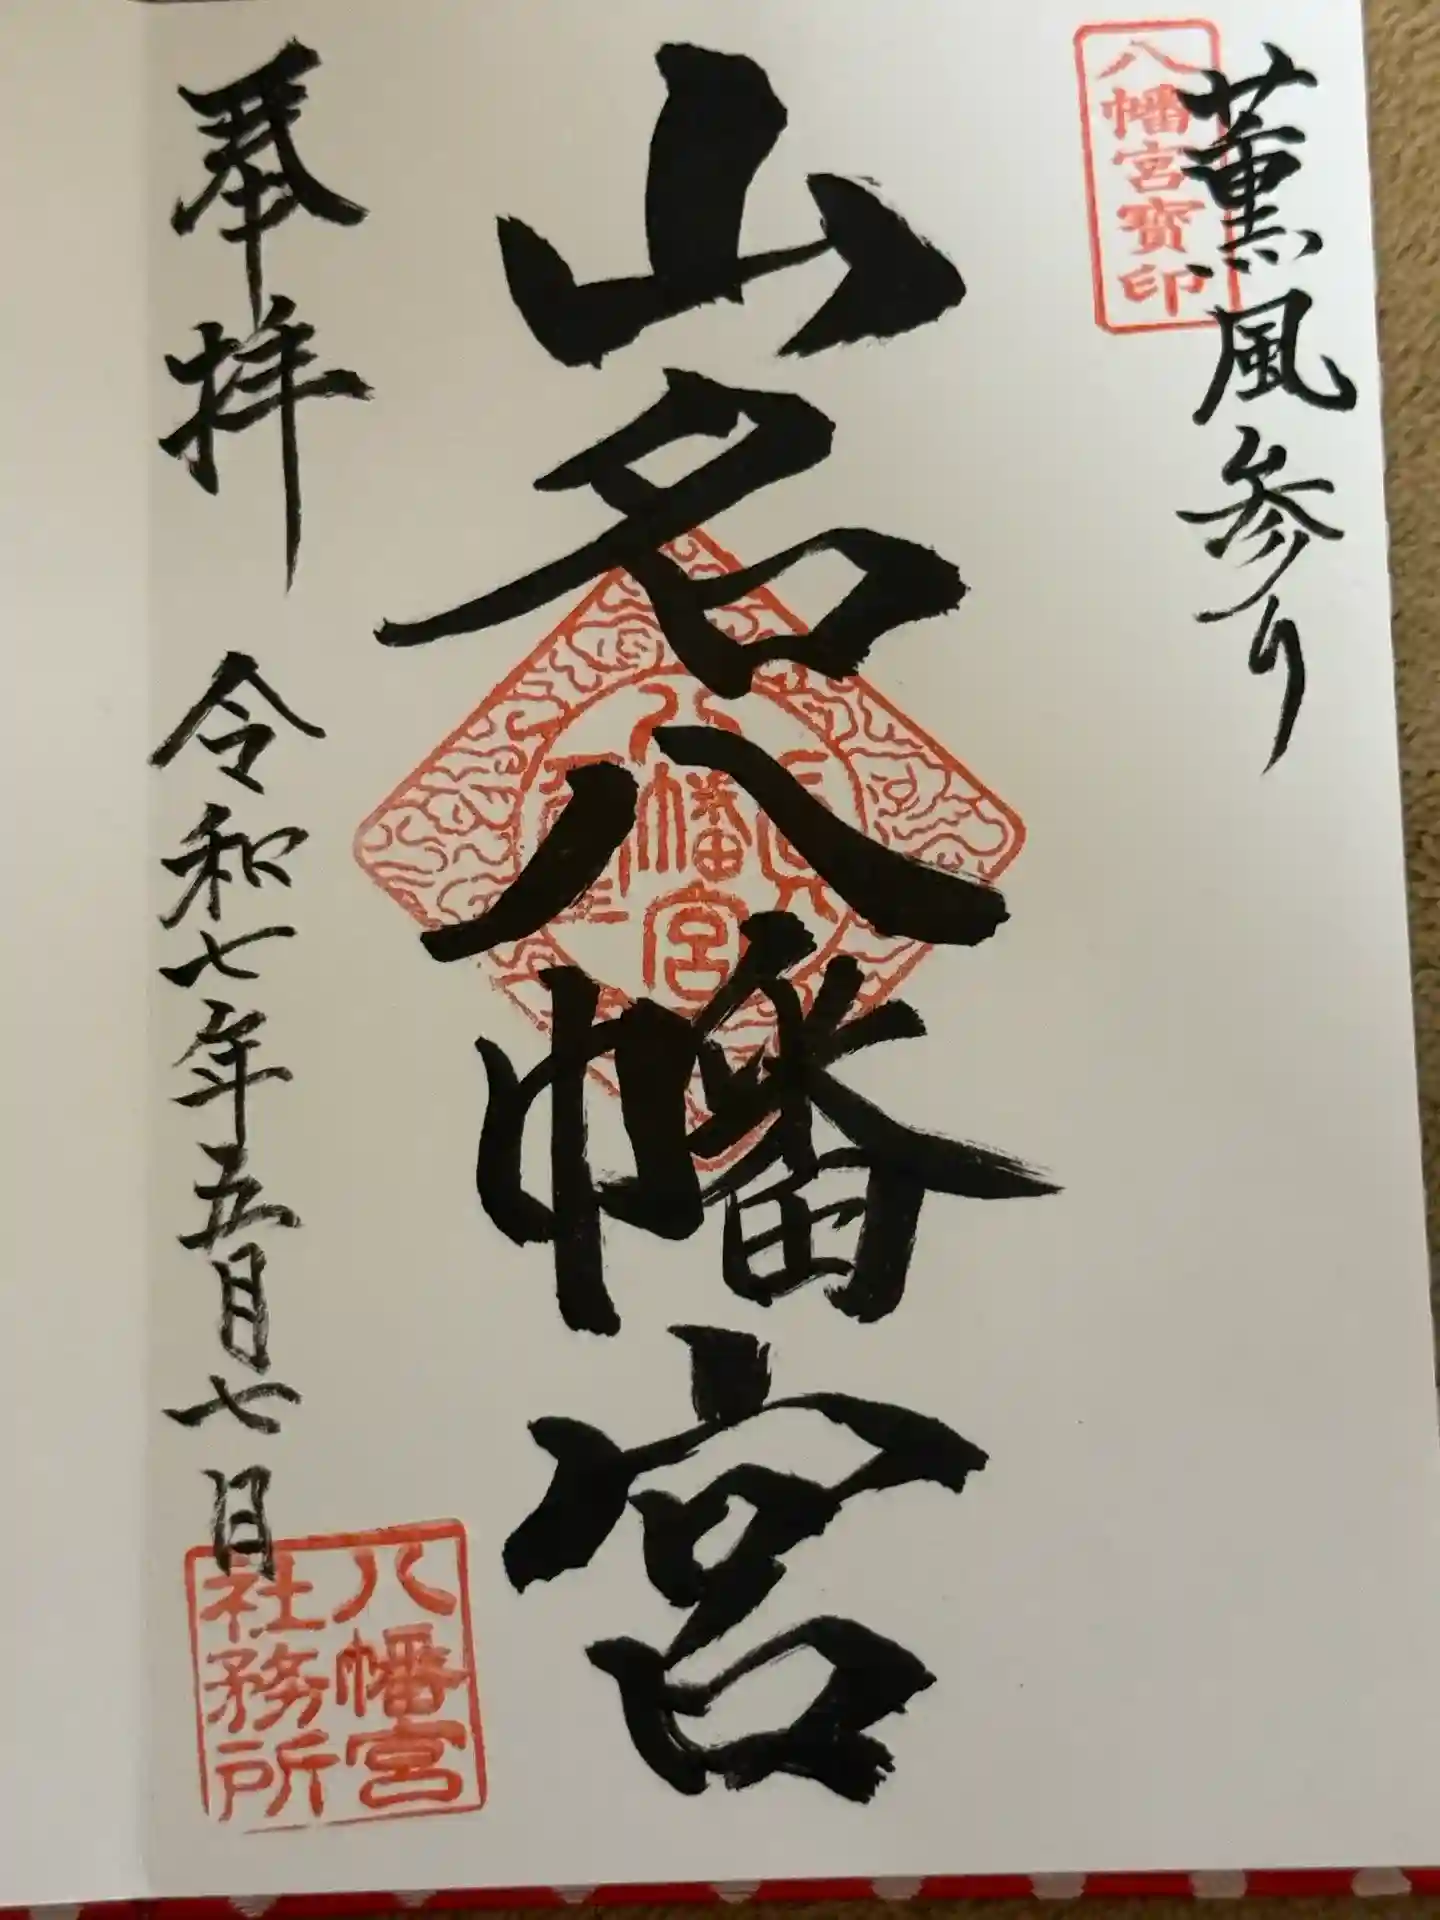 薫風参り
八幡宮寳印
山名八幡宮
八幡宮
奉拝
令和七年五月七日
八幡宮
社務所